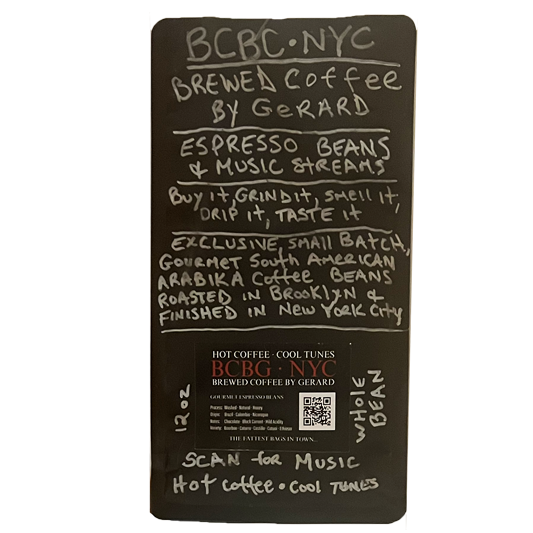 BCBC•NYC
BREWED Coffee
BY GeRARD
ESPRESSO BEANS
& MUSIC StREAMS
Buy it, GRIND it, SMEll it,
DRIP it, TASTE it
EXCLUSIVE, SMAll BAtCH,
GOURMET South AMERICAN
ARABIKA Coffee BEANS
ROASTED IN BRooKlyN &
FINISHED IN NEW YORK City
HOT COFFEE · COOL TUNES
BCBG · NYC
BREWED COFFEE BY GERARD
GOURMET ESPRESSO BEANS
Process: Washed · Natural · Honey
Origin: Brazil · Colombia · Nicaragua
Notes: Chocolate · Black Currant · Mild Acidity
THE FATTEST BAGS IN TOWN...
12 oz
WHOLE
BEAN
SCAN for MUSIC
Hot coffee • Cool TUNES